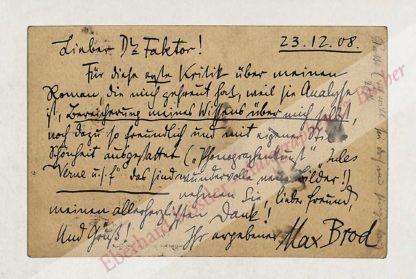 Lieber Dr Faktor! 23.12.08.
Für diese erste Kritik über meinen
Roman die mich gefreut hat, weil sie Analyse
ist, Bereicherung meines Wissens über mich selbst,
noch dazu so freundlich und mit eigener
Schönheit ausgestattet („Phonographenkunst" Jules
Verne u.s.f" das sind wundervolle neue Bilder!)
nehmen Sie, lieber Freund
meinen allerherzlichsten Dank!
Und Gruß! Ihr ergebener Max Brod